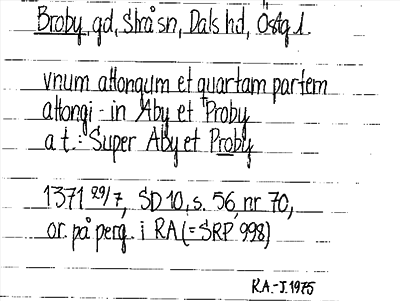 Broby, gd, Skråsn, Dals hd, Östg l.
vnum attongum et quartam partem
attongi - in Aby et Proby
a t.: Super Aby et Proby
1371 29/7, SD 10, s. 56, nr 70,
or. på perg. i RA (= SRP 998)
R.A.-J. 1975